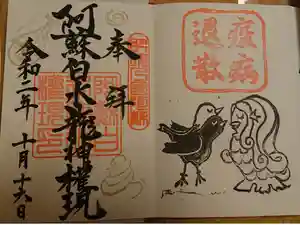 疫病
退散
奉拝
阿蘇白水龍神權現
令和二年十月十六日